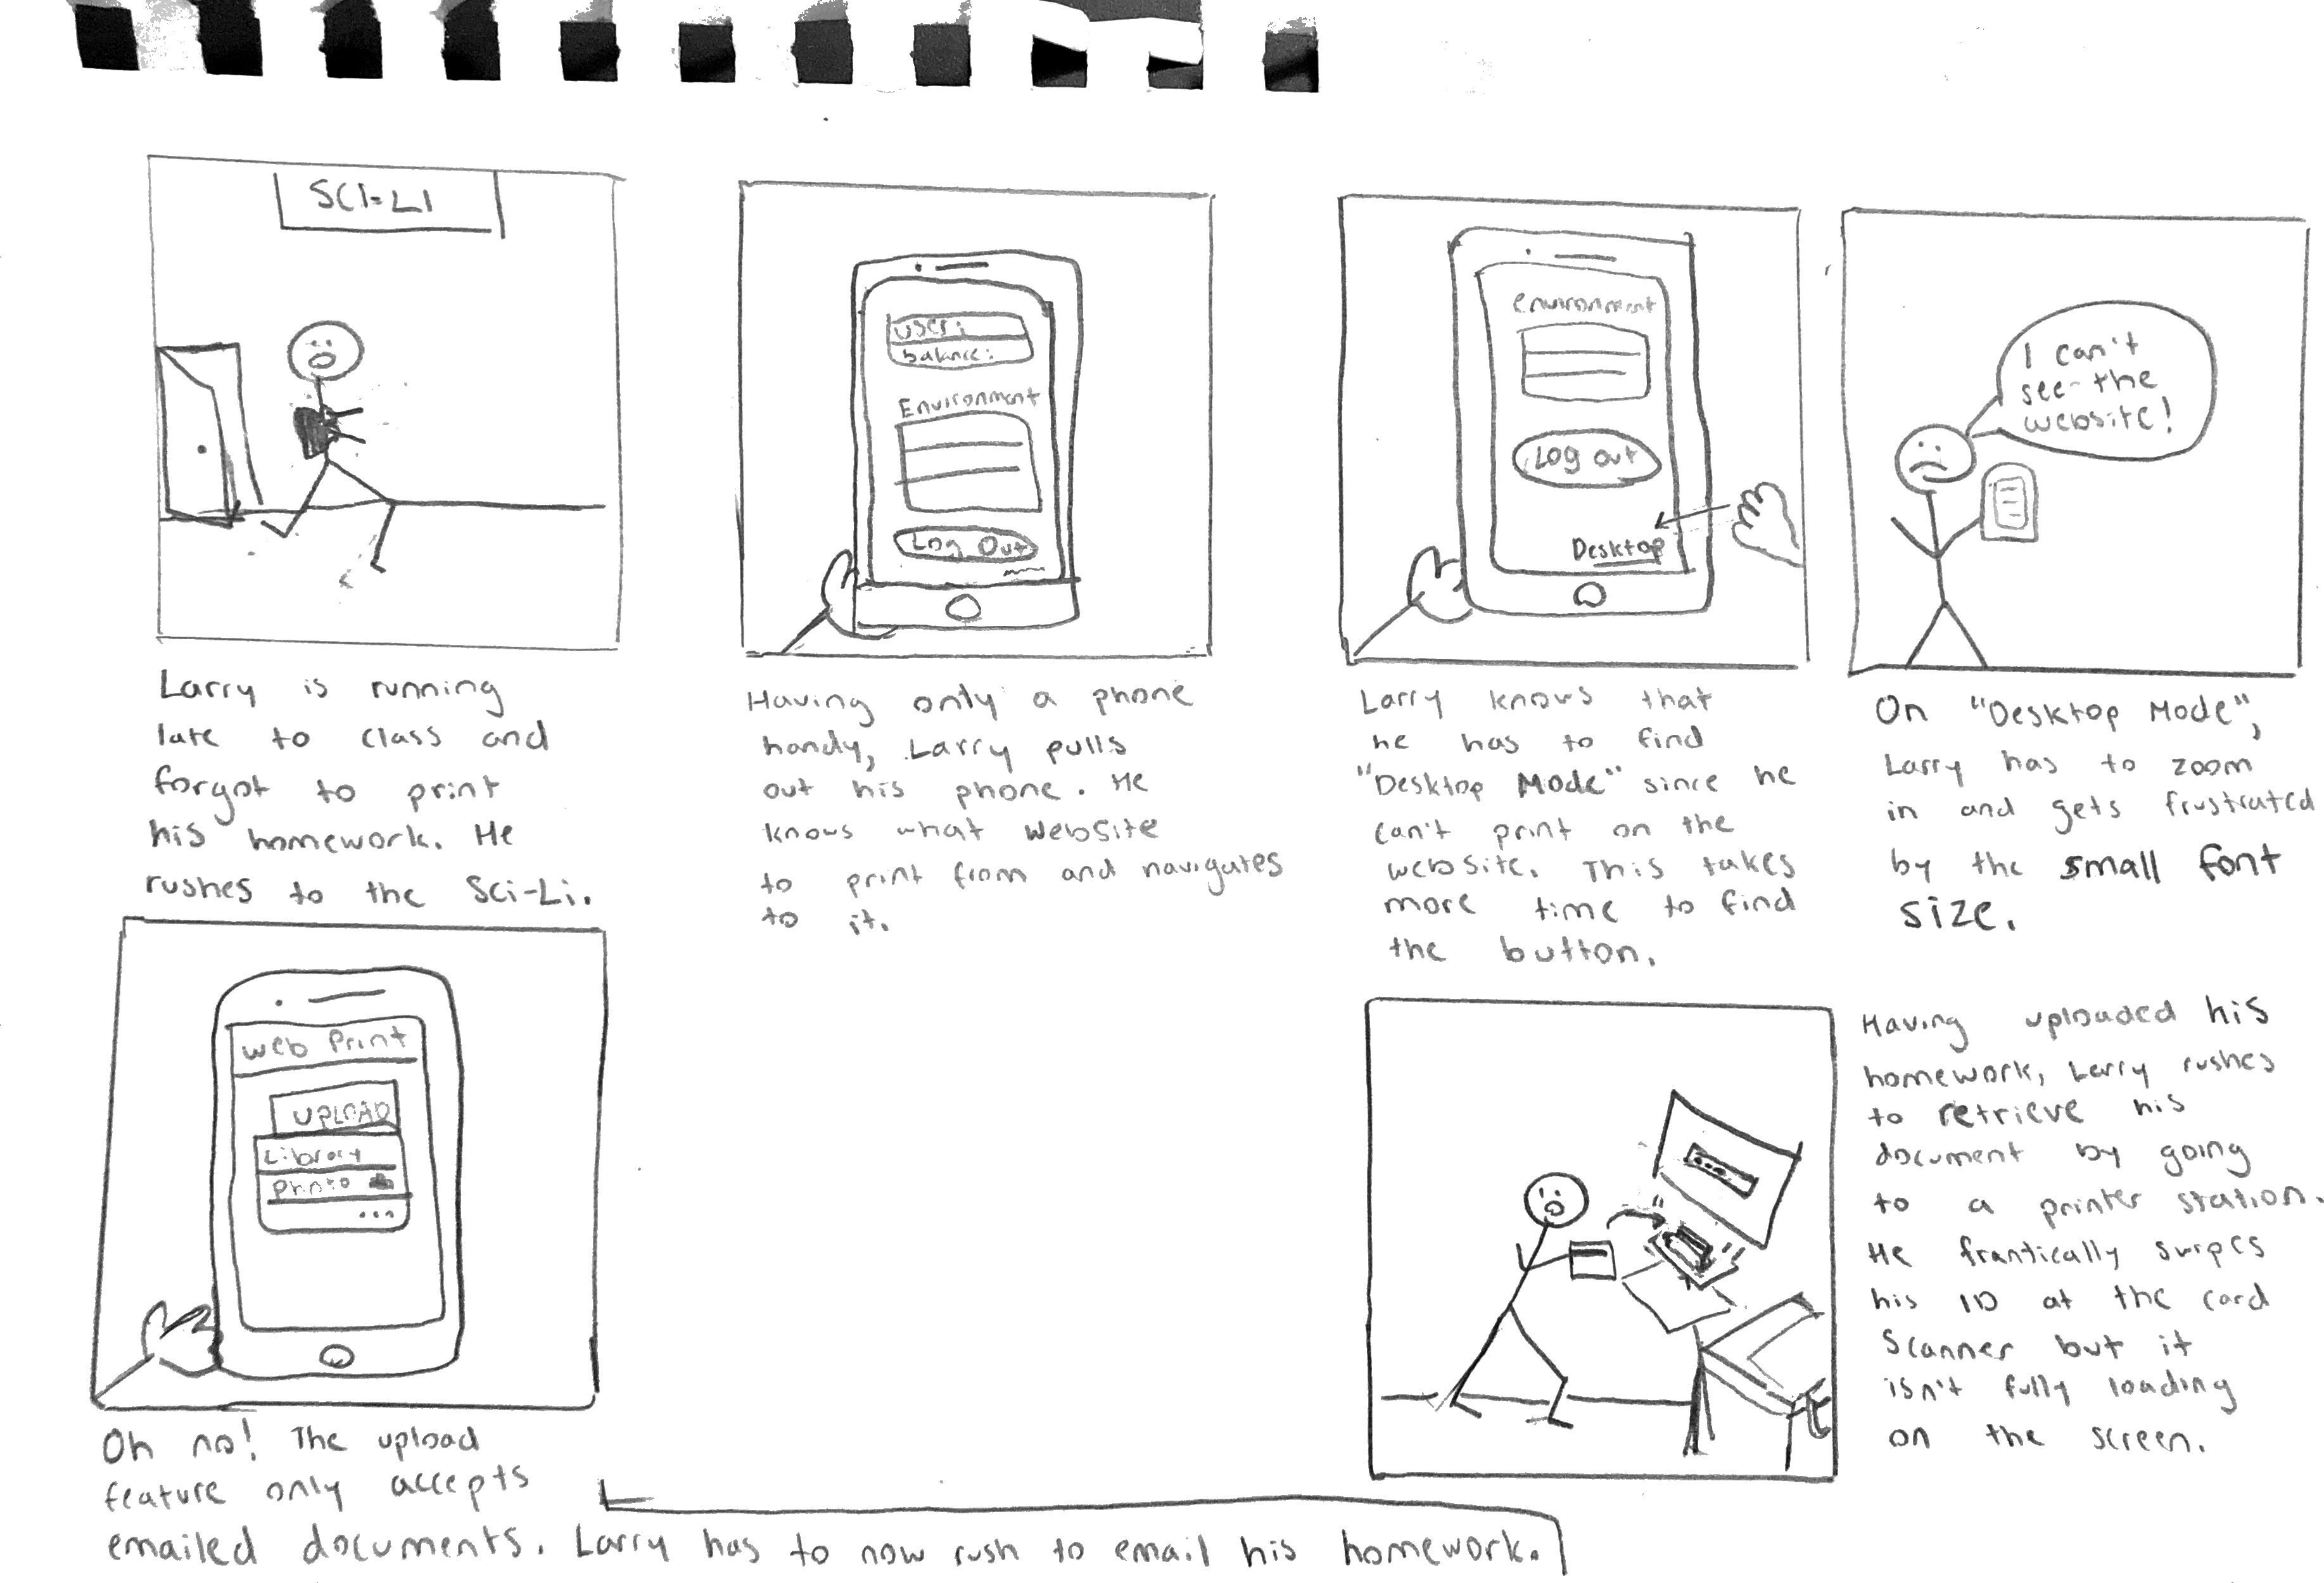 SCI-LI
Larry is running
late to class and
forgot to print
his homework. He
rushes to the Sci-Li.
user:
balance:
Environment
Log Out
Having only a phone
handy, Larry pulls
out his phone. He
knows what website
to print from and navigates
to it.
environment
Log out
Desktop
Larry knows that
he has to find
"Desktop Mode" since he
can't print on the
website. This takes
more time to find
the button.
I can't
see the
website!
On "Desktop Mode",
Larry has to zoom
in and gets frustrated
by the small font
size.
Web Print
UPLOAD
Library
Photo
...
Oh no! The upload
feature only accepts
emailed documents. Larry has to now rush to email his homework.
Having uploaded his
homework, Larry rushes
to retrieve his
document by going
to a printer station.
He frantically swipes
his ID at the card
scanner but it
isn't fully loading
on the screen.